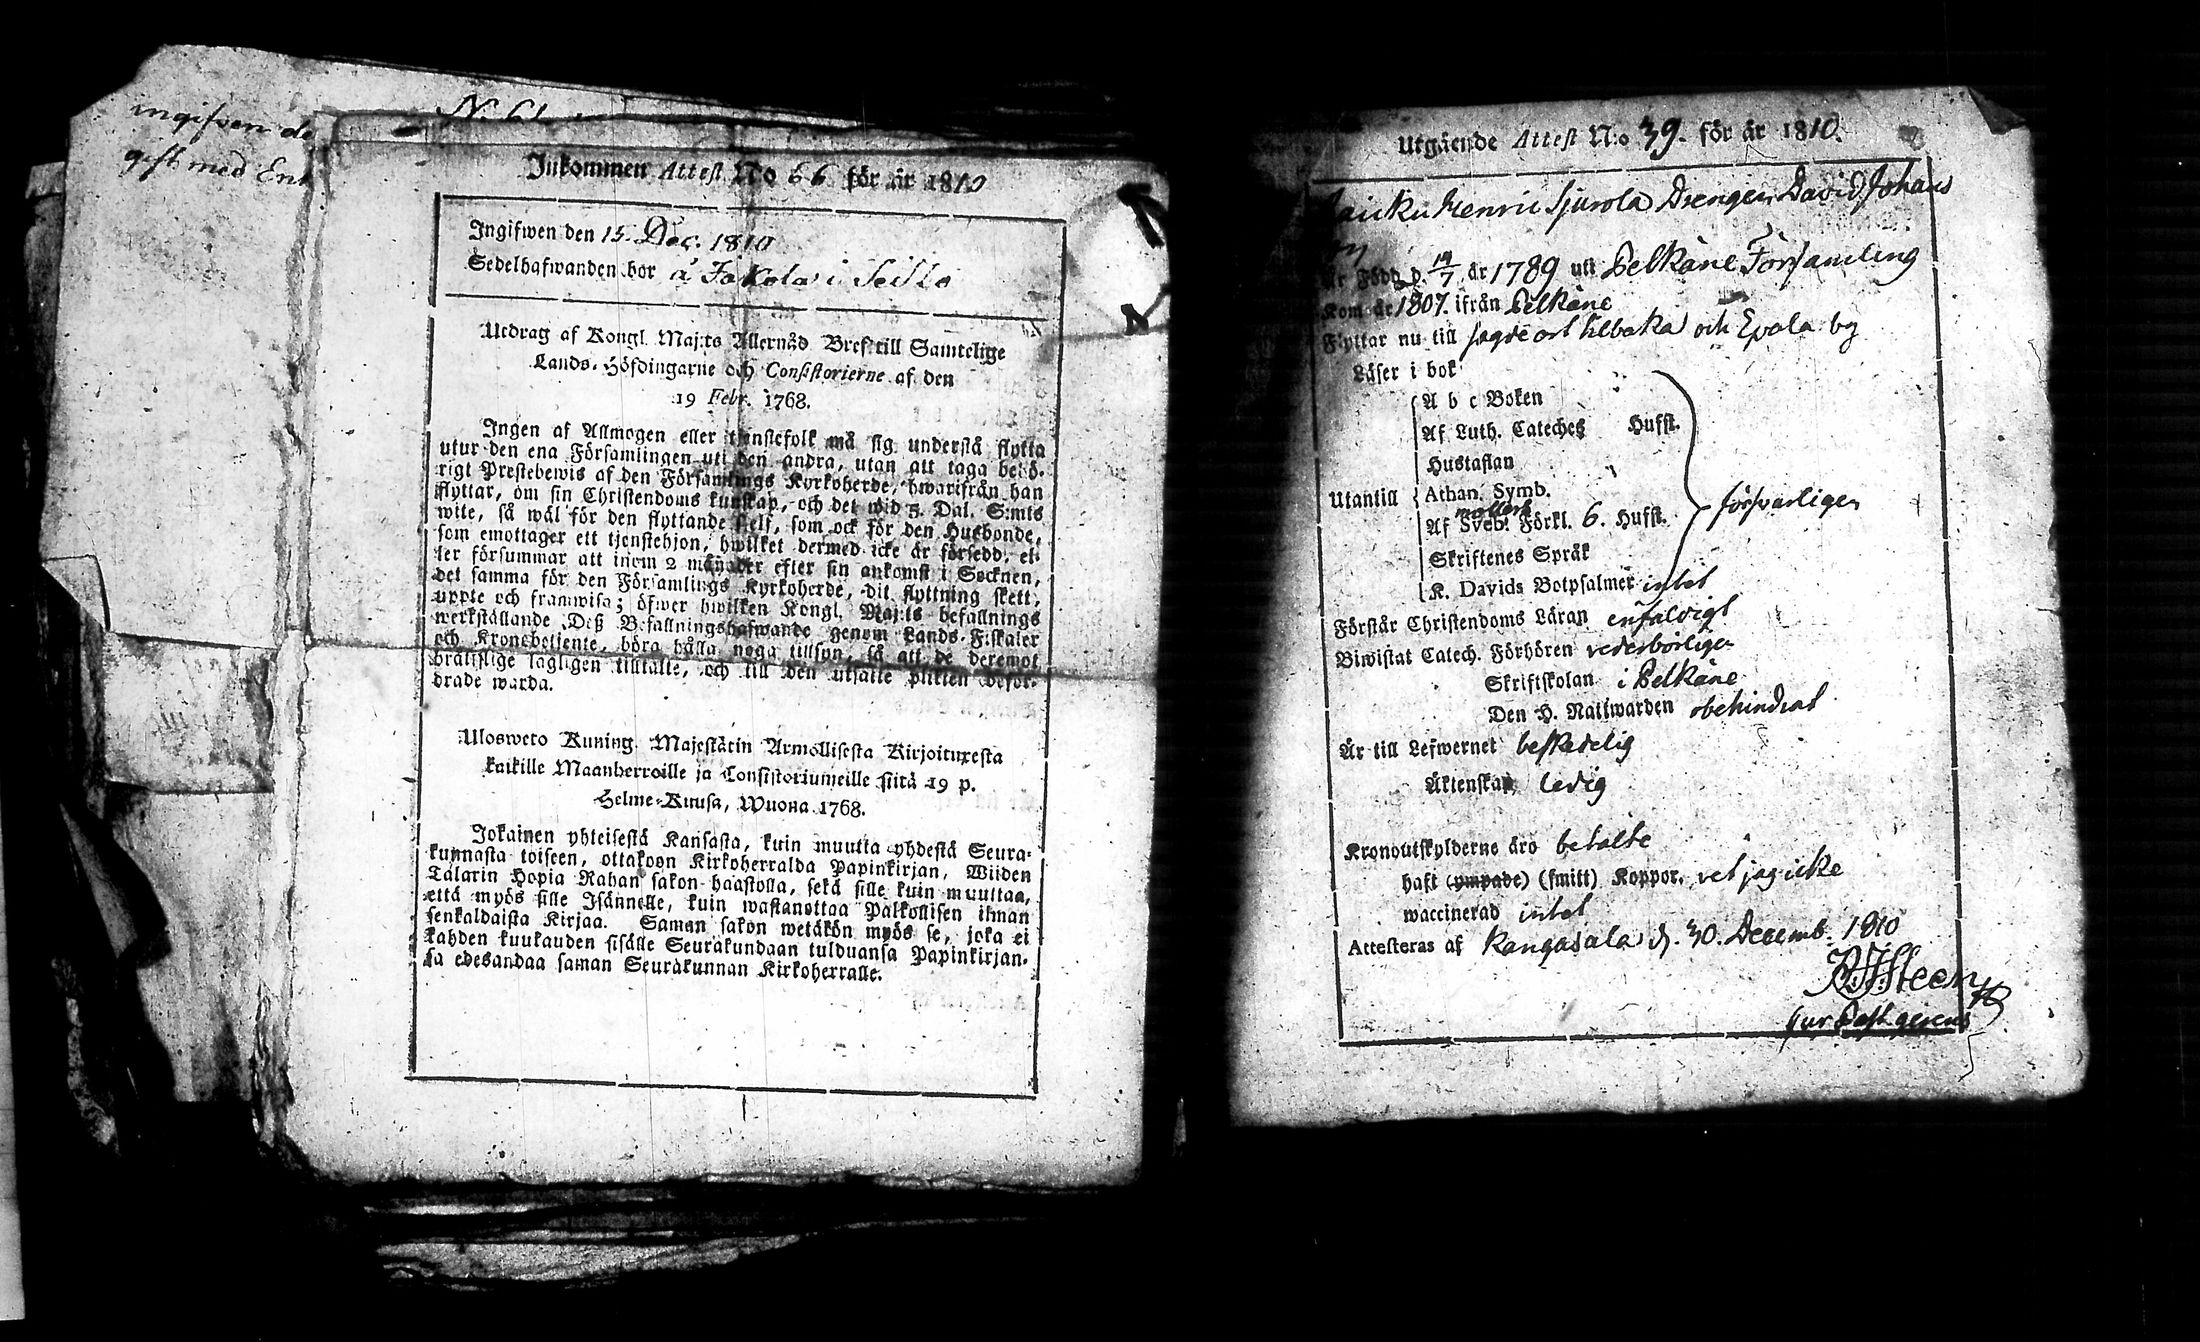 ingifven de
gift med Enk
N: 61
Inkommen Attest No 66 för år 1810
Ingifwen den 15. Dec: 1810
Sedelhafwanden bor å Jakola i Seikko
Utdrag af Kongl. Maj:ts Allernåd. Bref till Samtelige
Lands-Höfdingarne och Consistorierne af den
19 Febr. 1768.
Ingen af Allmogen eller tjenstefolk må sig understå flytta
utur den ena Församlingen uti den andra, utan att taga behö-
rigt Prestebewis af den Församlings Kyrkoherde, hwarifrån han
flyttar, om sin Christendoms kunskap, och det wid 5. Dal. S:mts
wite, så wäl för den flyttande sjelf, som ock för den Husbonde,
som emottager ett tjenstehjon, hwilket dermed icke är försedd, el-
ler försummar att inom 2 månader efter sin ankomst i Socknen,
det samma för den Församlings Kyrkoherde, dit flyttning skett,
uppte och framwisa; öfwer hwilken Kongl. Maj:ts befallnings
werkställande Deß Befallningshafwande genom Lands-Fiskaler
och Kronobetjente, böra hålla noga tillsyn, så att de deremot
brottslige lagligen tilltalte, och till den utsatte plikten befor-
drade warda.
Ulosweto Kuning. Majestätin Armollisesta Kirjoituxesta
kaikille Maanherroille ja Consistoriumeille siitä 19 p.
Helme-Kuusa, Wuona 1768.
Jokainen yhteisestä Kansasta, kuin muutta yhdestä Seura-
kunnasta toiseen, ottakoon Kirkoherralda Papinkirjan, Wiiden
Talarin Hopia Rahan sakon haastolla, sekä sille kuin muuttaa,
että myös sille Isännelle, kuin wastanottaa Palkollisen ilman
senkaldaista Kirjaa. Saman sakon wetäkön myös se, joka ei
kahden kuukauden sisälle Seurakundaan tulduansa Papinkirjan-
sa edesandaa saman Seurakunnan Kirkoherralle.
Utgående Attest N:o 39. för år 1810.
Henric Sjurola Drengen David Johans
son
Är Född d. 19/7 år 1789 uti Pelkäne Församling
Kom år 1807. ifrån Pelkäne
Flyttar nu till sagde ort tilbaka och Epala by
Läser i bok
A b c Boken
Af Luth. Cateches Hufst.
Hustaflan
Utantill Athan. Symb.
Af Sveb. Förkl. 6. Hufst. försvarligen
Skriftenes Språk
K. Davids Botpsalmer intet
Förstår Christendoms Läran enfaldigt
Biwistat Catech. Förhören vederbörligen
Skriftskolan i Pelkäne
Den H. Nattwarden obehindrat
Är till Lefwernet beskedelig
Äktenskap ledig
Kronoutskylderne äro betalte
haft (ympade) (smitt) Koppor, vet jag icke
waccinerad intet
Attesteras af Kangasala d. 30. Decemb. 1810